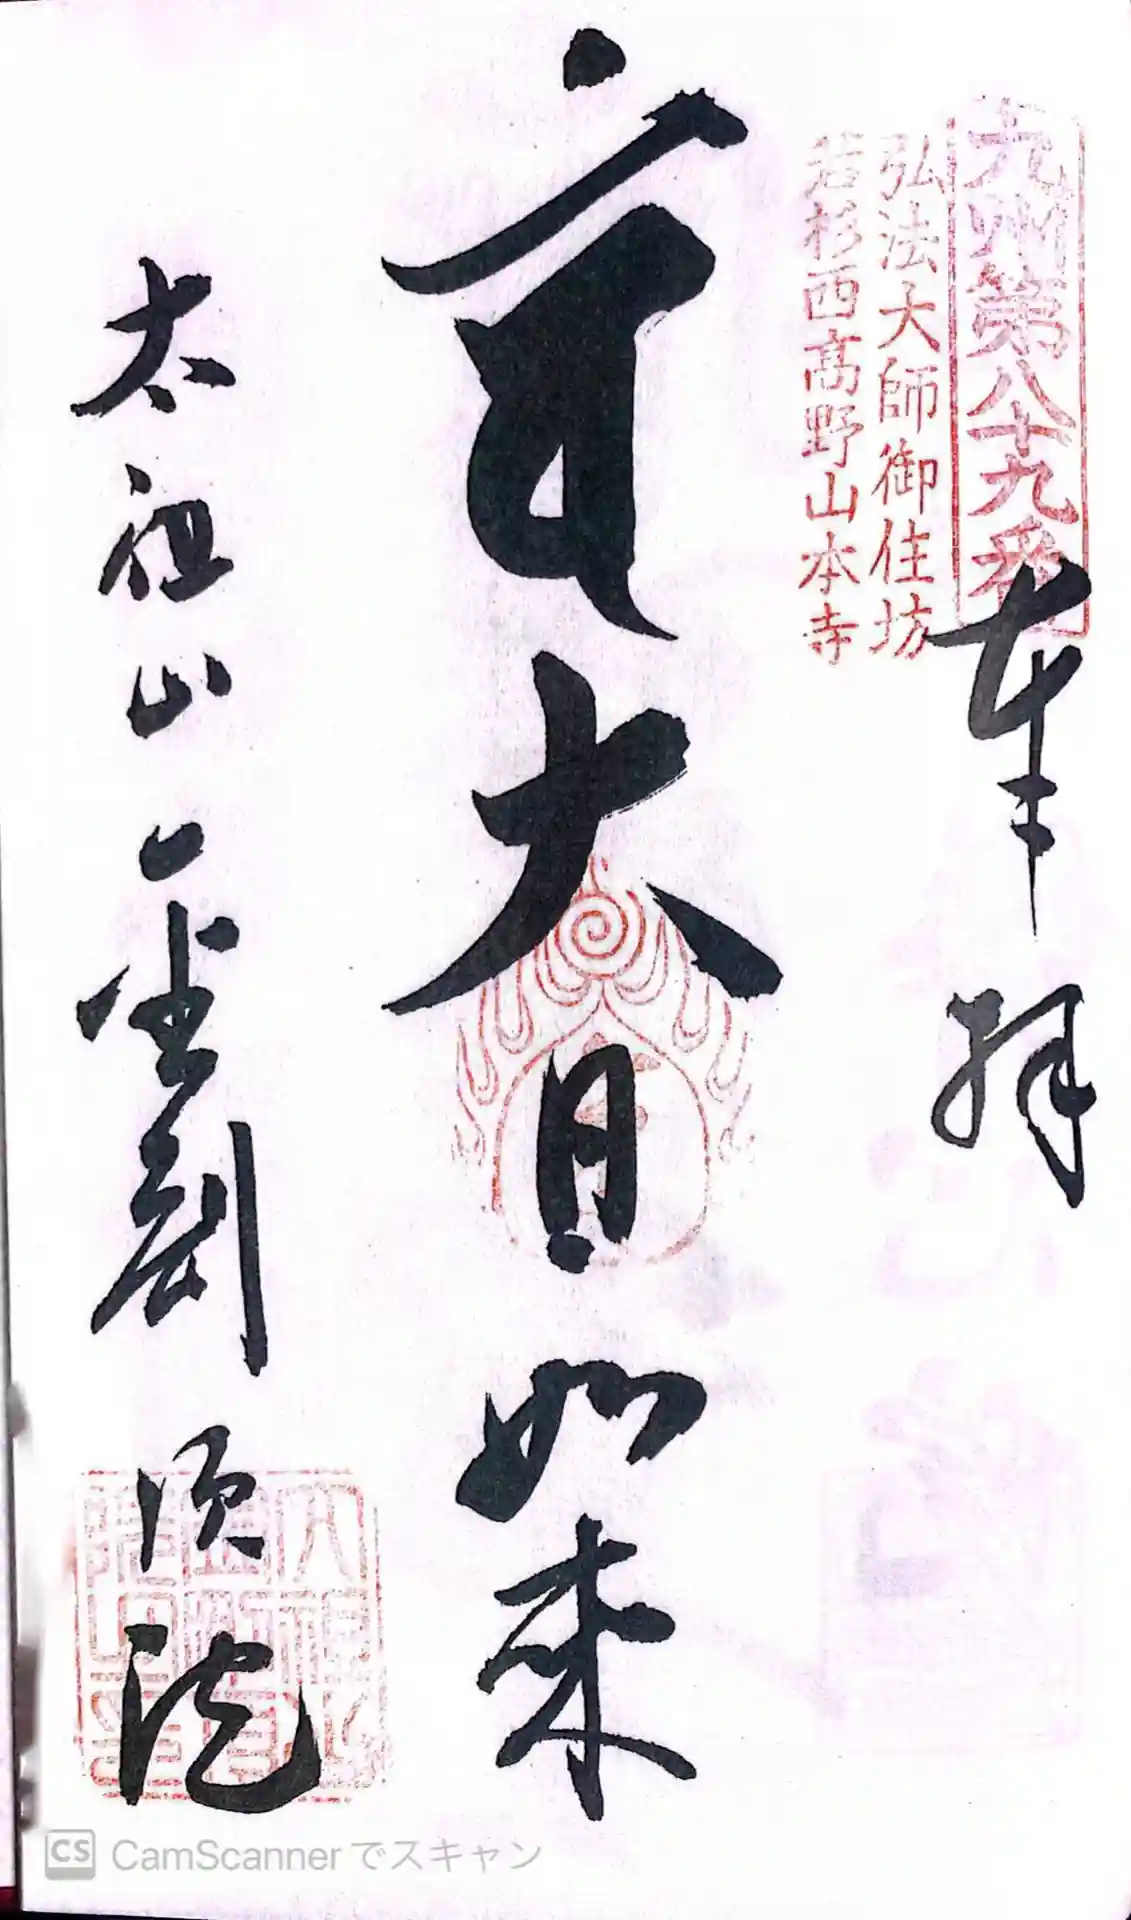 九州第八十九番
弘法大師御住坊
若杉西高野山本寺
奉拝
大日如来
太祖山
金剛頂院
CamScannerでスキャン